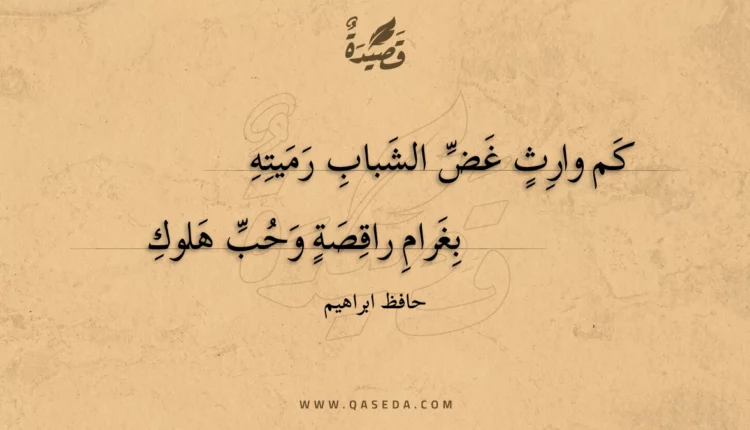 قَصِيْدَةٌ
كَم وارِثٍ غَضِّ الشَبابِ رَمَيتِهِ
بِغَرامِ راقِصَةٍ وَحُبِّ هَلوكِ
حافظ ابراهيم
WWW.QASEDA.COM